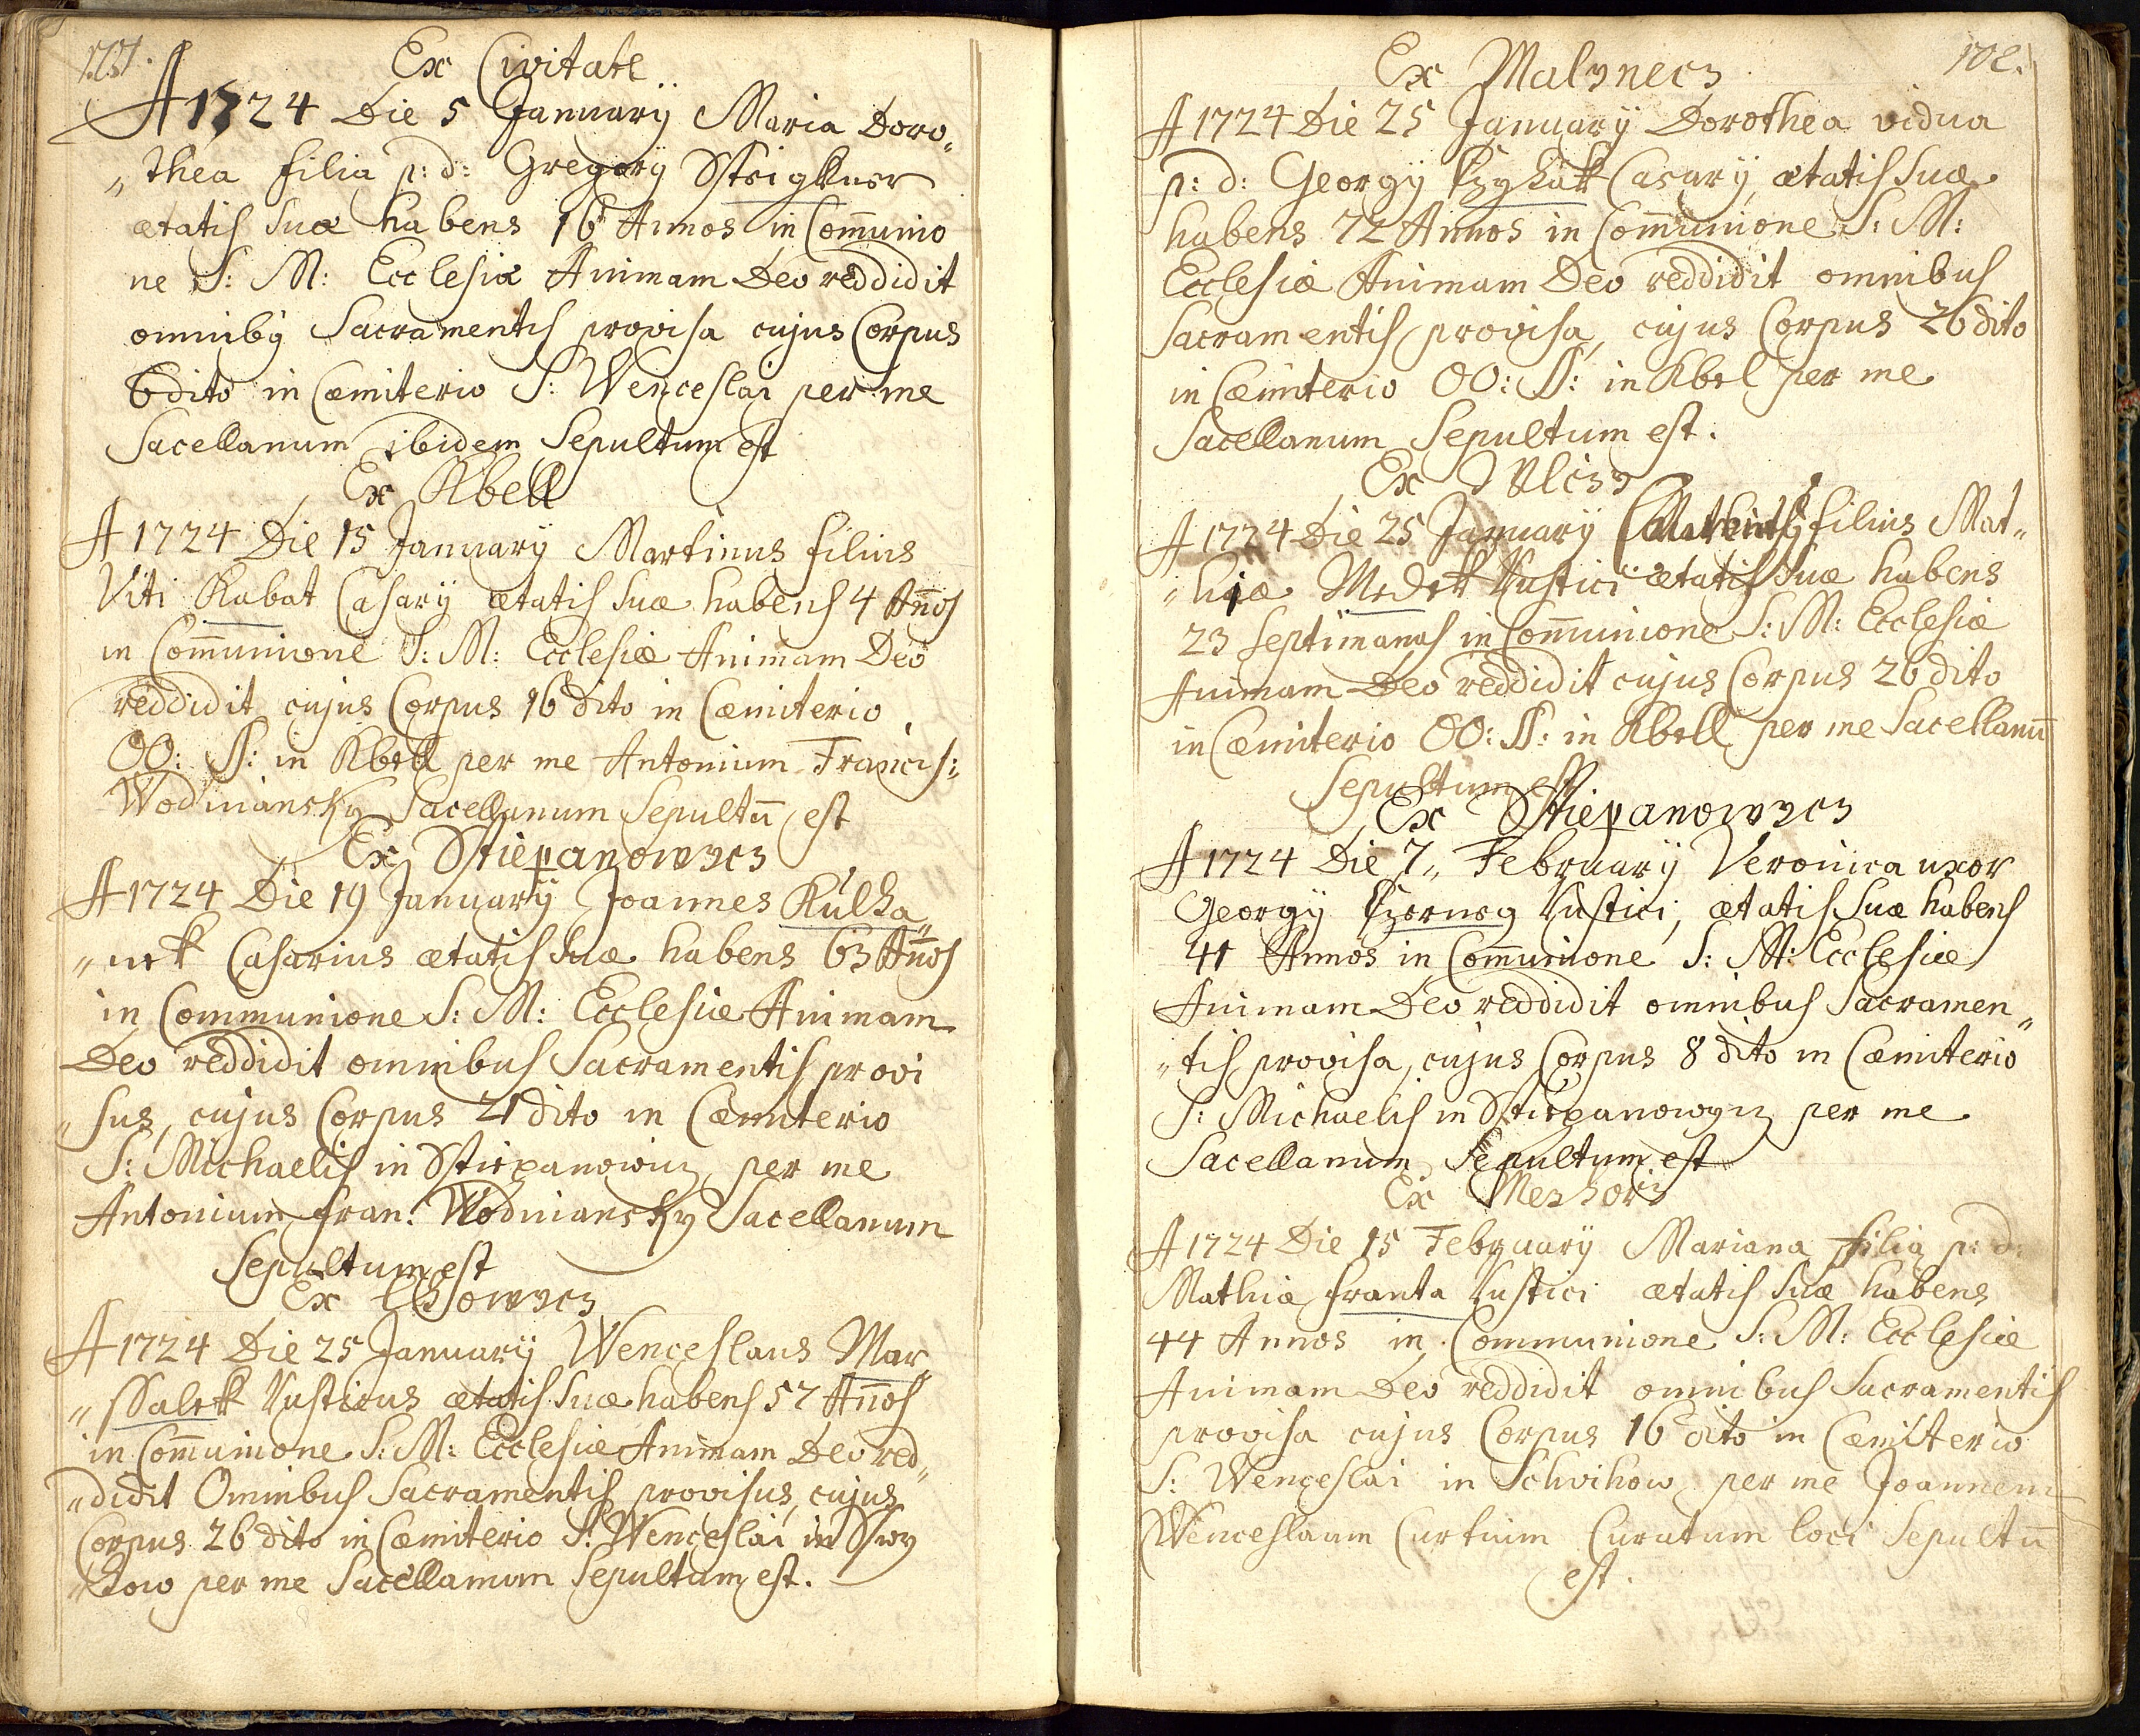 101.
Ex Civitate
A 1724 Die 5 Januarÿ Maria Doro„
„thea filia p: d: Gregorÿ Steigkner
ætatis suæ habens 16 Annos in Com̄unio
ne S: M: Ecclesiæ Animam Deo reddidit
omnibꝰ Sacramentis provisa cujus Corpus
6 dito in Cæmiterio S: Wenceslai per me
Sacellanum ibidem Sepultum est
Ex Kbell
A 1724 Die 15 Januarÿ Martinus filius
Viti Kabat Casarÿ ætatis suæ habens 4 An̄os
in Com̄unione S: M: Ecclesiæ Animam Deo
reddidit cujus Corpus 16 dito in Cæmiterio
OO: SS: in Kbell per me Antonium Francis:
Wodniansky Sacellanum Sepultū est
Ex Stiepanowycz
A 1724 Die 19 Januarÿ Joannes Kulha„
„nek Casarius ætatis suæ habens 63 An̄os
in Communione S: M: Ecclesiæ Animam
Deo reddidit omnibus Sacramentis provi
„sus, cujus Corpus 21 dito in Cæmiterio
S: Michaelis in Stiepanowicz per me
Antonium Fran: Wodniansky Sacellanum
Sepultum est
Ex Lhowycz
A 1724 Die 25 Januarÿ Wenceslaus Mar„
„ssalek Rusticus ætatis suæ habens 57 An̄os
in Com̄unione S: M: Ecclesiæ Animam Deo red„
„didit Omnibus Sacramentis provisus, cujus
Corpus 26 dito in Cæmiterio S: Wenceslai in Swy
„how per me Sacellanum Sepultum est.
102.
Ex Malynecz
A 1724 Die 25 Januarÿ Dorothea vidua
p: d: Georgÿ Czyhak Casarÿ, ætatis suæ
habens 72 Annos in Com̄unione S: M:
Ecclesiæ Animam Deo reddidit omnibus
Sacramentis provisa, cujus Corpus 26 dito
in Cæmiterio OO: SS: in Kbel per me
Sacellanum Sepultum est.
Ex Vlczy
A 1724 Die 25 Januarÿ filius Mat„
„hiæ Medek Rustici ætatis suæ habens
23 septimanas in Com̄unione S: M: Ecclesiæ
Animam Deo reddidit cujus Corpus 26 dito
in Cæmiterio OO: SS: in Kbell per me Sacellanū
Sepultum est
Ex Stiepanowycz
A 1724 Die 7„ Februarÿ Veronica uxor
Georgÿ Czerneg Rustici, ætatis suæ habens
41 Annos in Com̄unione S: M: Ecclesiæ
Animam Deo reddidit omnibus Sacramen„
„tis provisa, cujus Corpus 8 dito in Cæmiterio
S: Michaelis in Stiepanowycz per me
Sacellanum Sepultum est
Ex Mezhorȷ
A 1724 Die 15 Februarÿ Mariana filia p: d:
Mathiæ Franta Rustici ætatis suæ habens
44 Annos in Communione S: M: Ecclesiæ
Animam Deo reddidit omnibus Sacramentis
provisa cujus Corpus 16 dito in Cæmiterio
S: Wenceslai in Schvihow per me Joannem
Wenceslaum Curtium Curatum loci Sepultū
est.